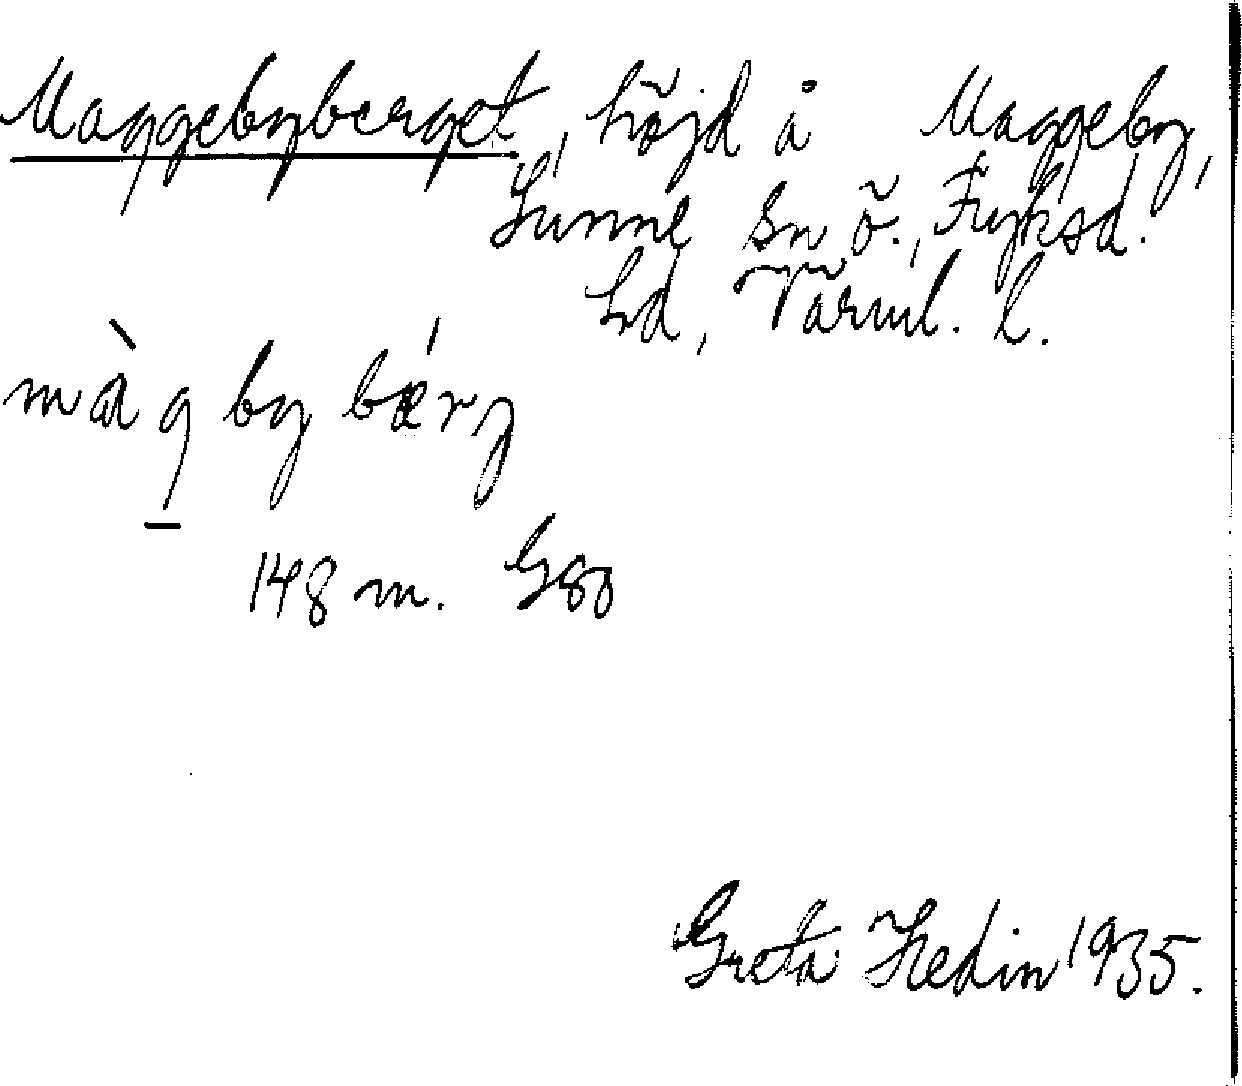 Maggebyberget, höjd å Maggeby,
Sunne sn ö., Fryksd.
hd, Värml. l.
màg by bǽrj
148 m. Gso
Greta Hedin 1935.